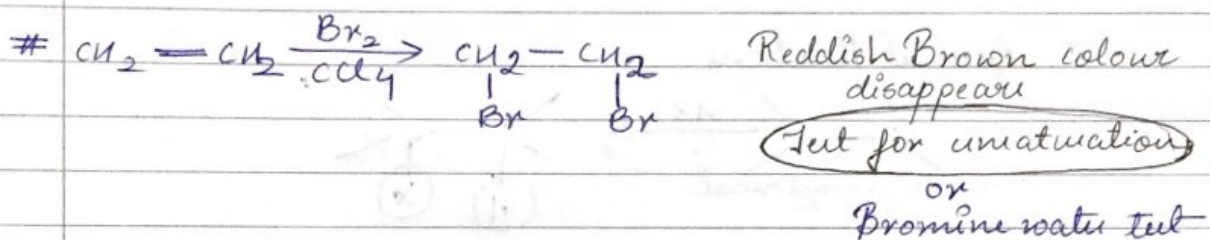 # CH2 = CH2 Br2/CCl4 → CH2 - CH2 Reddish Brown colour
Br Br disappears
Test for unsaturation
or
Bromine water test